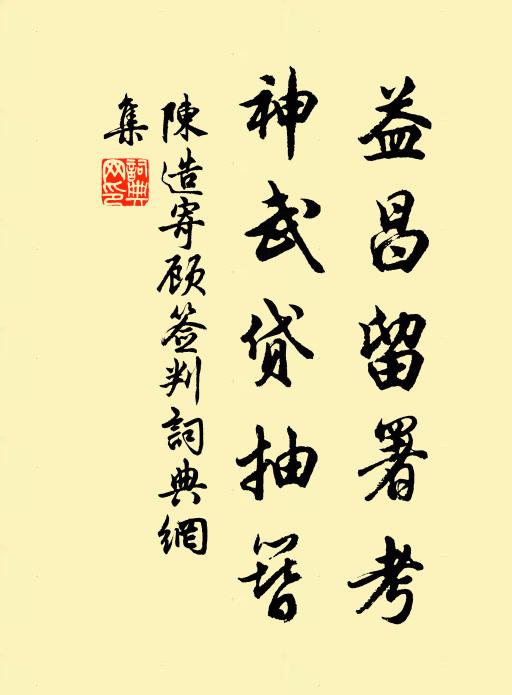 益昌留署考
神武贷抽簪
陳造寄顾签判詞典網
集
詞典網印